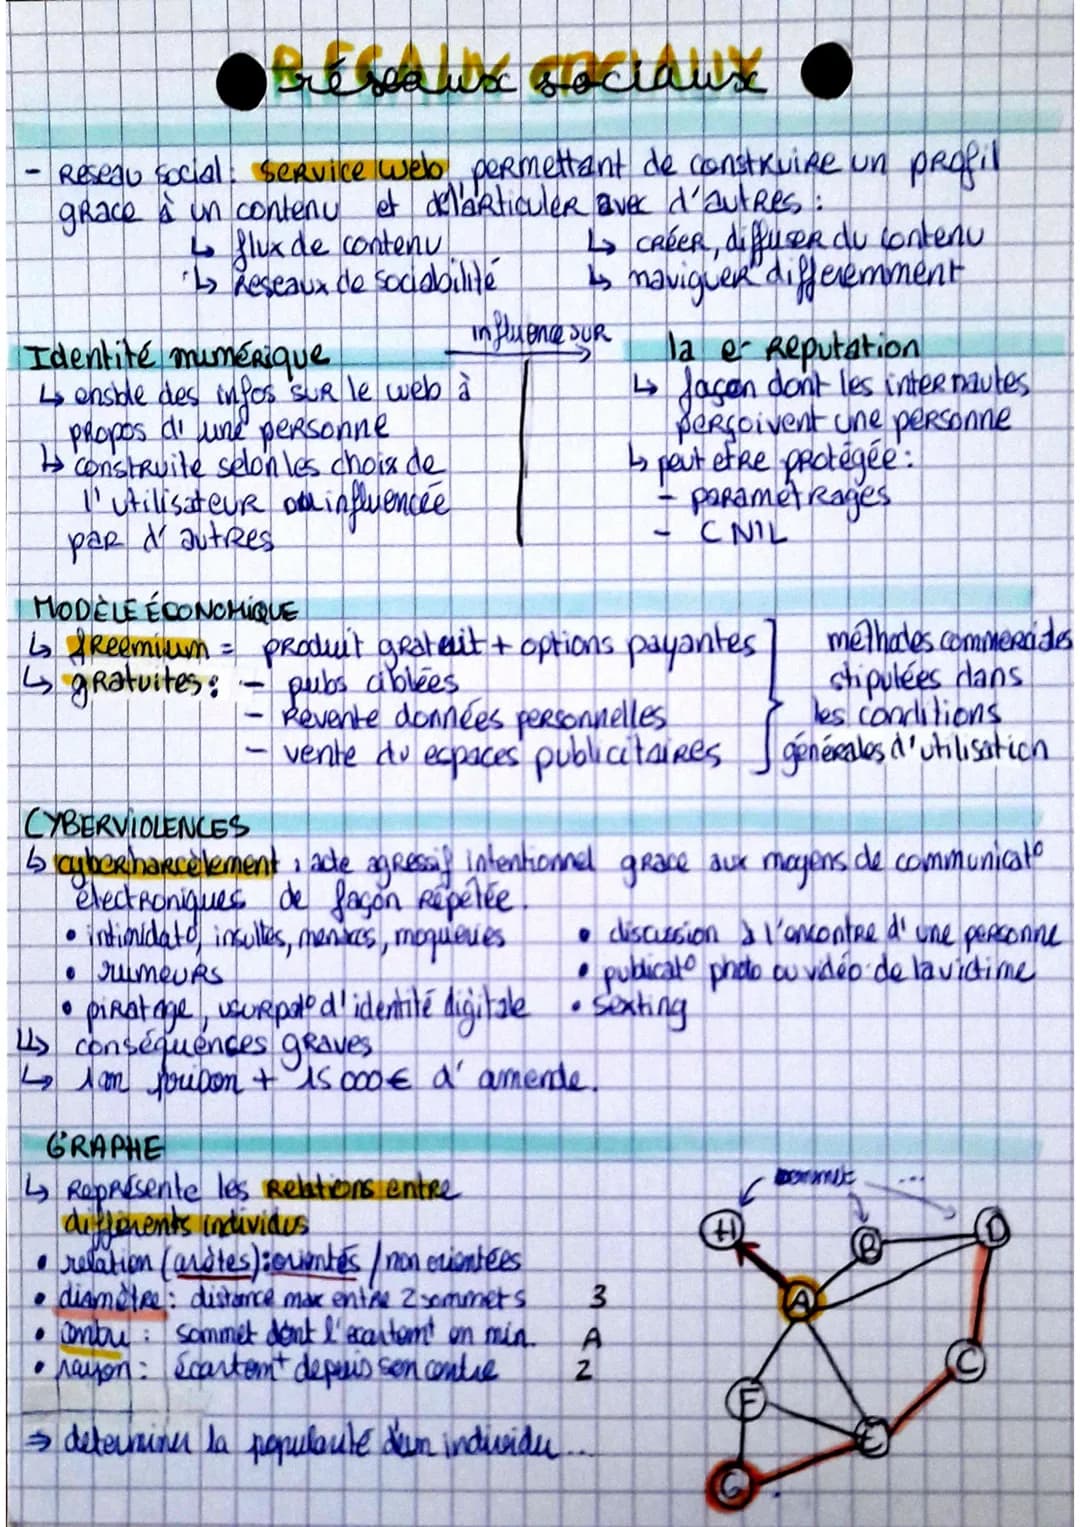 réseaux sociaux
- Reseau social : service web permettant de construire un profil
grace à un contenu et de l'articuler avec d'autres :
↳ flux de contenu
↳ Reseaux de sociabilité
↳ créer, diffuser du contenu
↳ naviguer differemment
Identité numérique
influence sur
la e-reputation
↳ ensble des infos sur le web à
propos d' une personne
↳ construite selon les choix de
l'utilisateur ou influencée
par d'autres
↳ façon dont les internautes
perçoivent une personne
↳ peut etre protégée :
- parametrages
- CNIL
MODÈLE ÉCONOMIQUE
↳ freemium = produit gratuit + options payantes
↳ gratuites : - pubs ciblées
- Revente données personnelles
- vente du espaces publicitaires
méthodes commerciales
stipulées dans
les conditions
générales d'utilisation
CYBERVIOLENCES
↳ cyberharcèlement : acte agressif intentionnel grace aux moyens de communicat°
électroniques de façon répétée.
• intimidat°, insultes, menaces, moqueries
• rumeurs
• piratage, usurpat° d'identité digitale
• discussion à l'encontre d'une personne
• publicat° photo ou vidéo de la victime
• sexting
↳ conséquences graves
↳ 1 an prison + 15 000€ d'amende.
GRAPHE
↳ Représente les relations entre
différents individus
• relation (arêtes) : orientés / non orientées
• diamètre : distance max entre 2 sommets 3
• centre : sommet dont l'ecartemt en min. A
• rayon : écartemt depuis son centre 2
⇒ determiner la popularité d'un individu ...
sommet ...
H
B
D
A
C
F
E
G